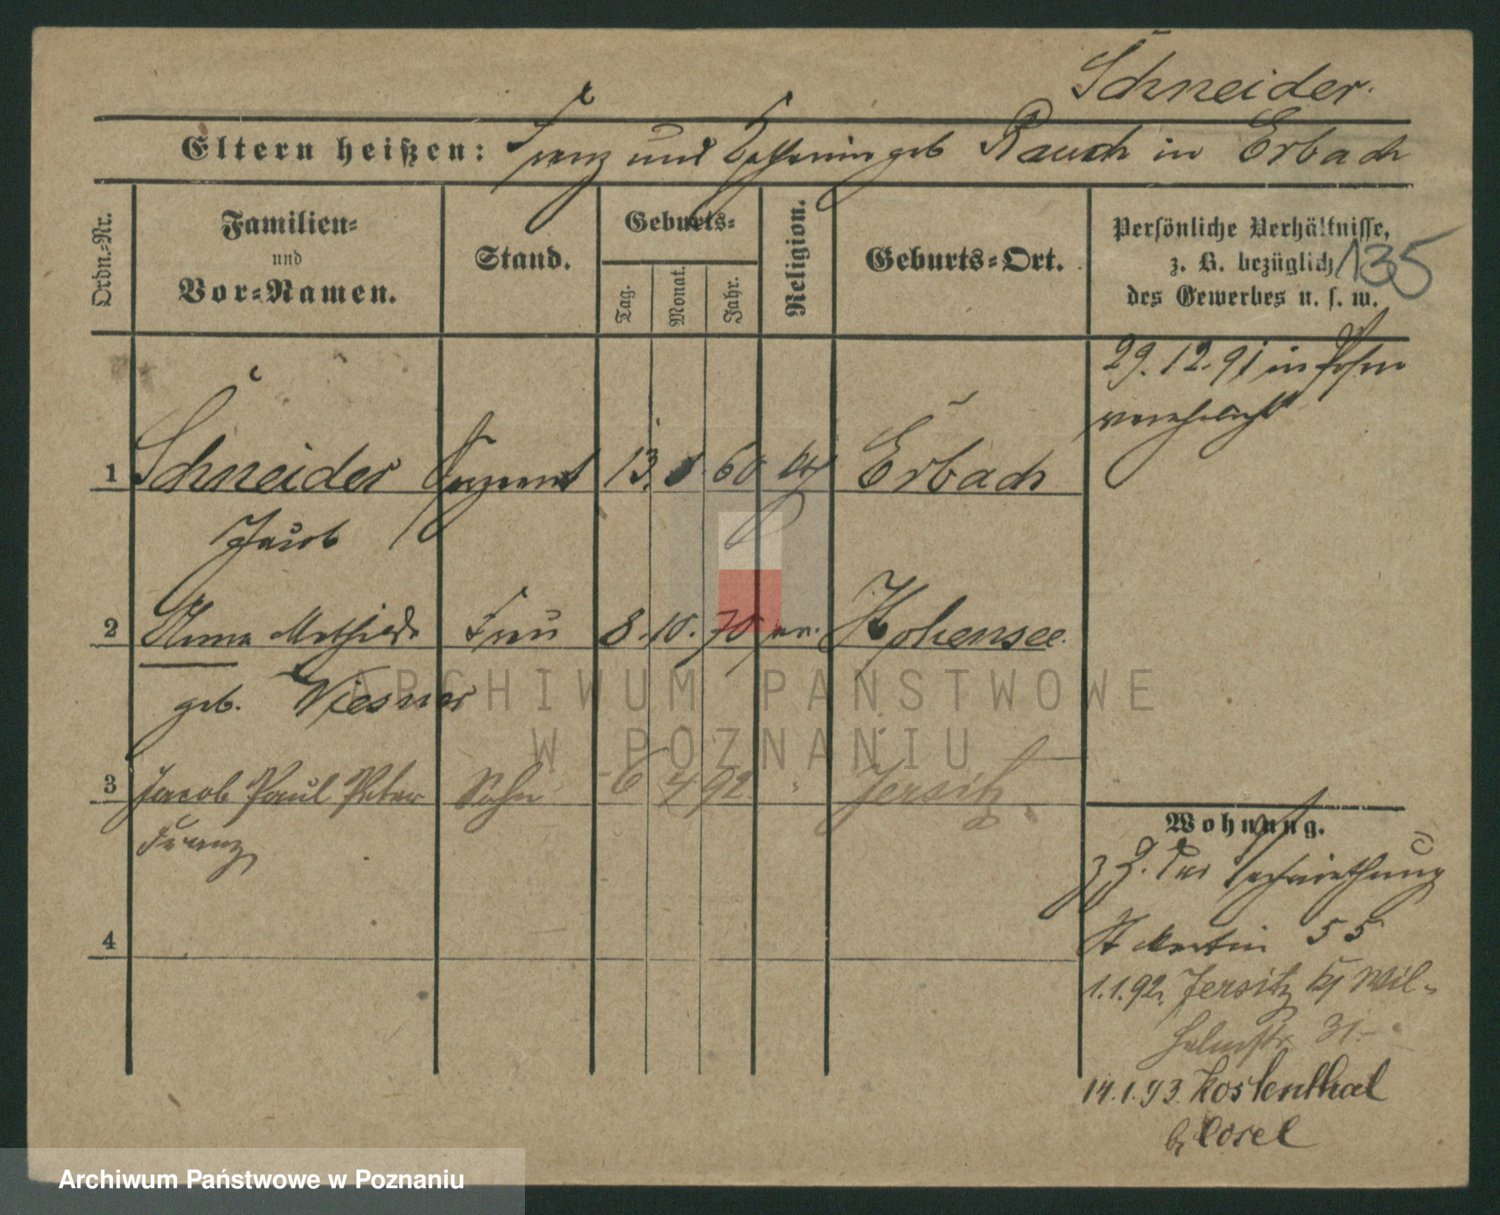 Schneider.
Eltern heißen: Franz und Catharina geb Rauch in Erbach
Ordn.-Nr.
Familien- und Vor-Namen.
Stand.
Geburts-
Tag.
Monat.
Jahr.
Religion.
Geburts-Ort.
Persönliche Verhältnisse,
z. B. bezüglich
des Gewerbes u. s. w.
135
29.12.91 in Posen
verehelicht
1 Schneider 13. 8. 60 Erbach
Jacob
2 Anna Mathilde Frau 8. 10. 70 ev. Hohensee.
geb. Wiesner
3 Jacob Paul Peter Sohn 6 7 92 Jersitz
Franz
4
Wohnung.
St Martin 55
1.1.92. Jersitz Wil-
helmstr. 31
14.1.93. Kostenthal
b/ Cosel
ARCHIWUM PAŃSTWOWE
W POZNANIU
Archiwum Państwowe w Poznaniu